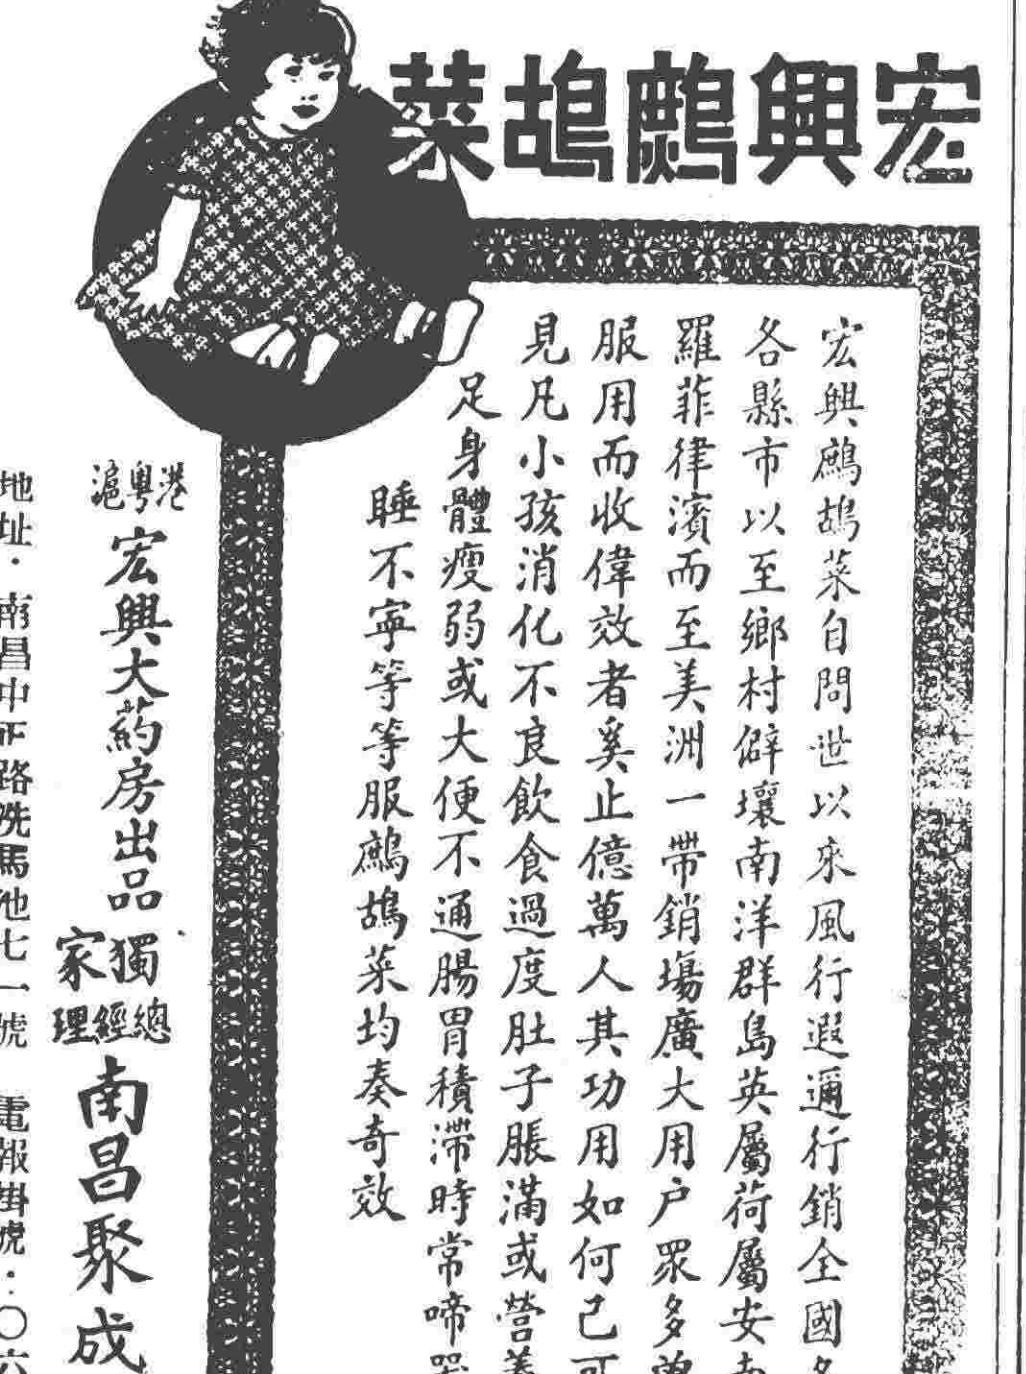 宏興鷓鴣菜
宏興鷓鴣菜自問世以來風行遐邇行銷全國各
各縣市以至鄉村僻壤南洋群島英屬荷屬安南
羅菲律濱而至美洲一帶銷場廣大用户眾多曾
服用而收偉效者奚止億萬人其功用如何己可
見凡小孩消化不良飲食過度肚子脹滿或營養
足身體瘦弱或大便不通腸胃積滯時常啼哭
睡不寧等等服鷓鴣菜均奏奇效
港粤滬
宏興大药房出品
獨家
總經理
南昌聚成
地址·南昌中正路洗馬池七一號 電報掛號:〇六